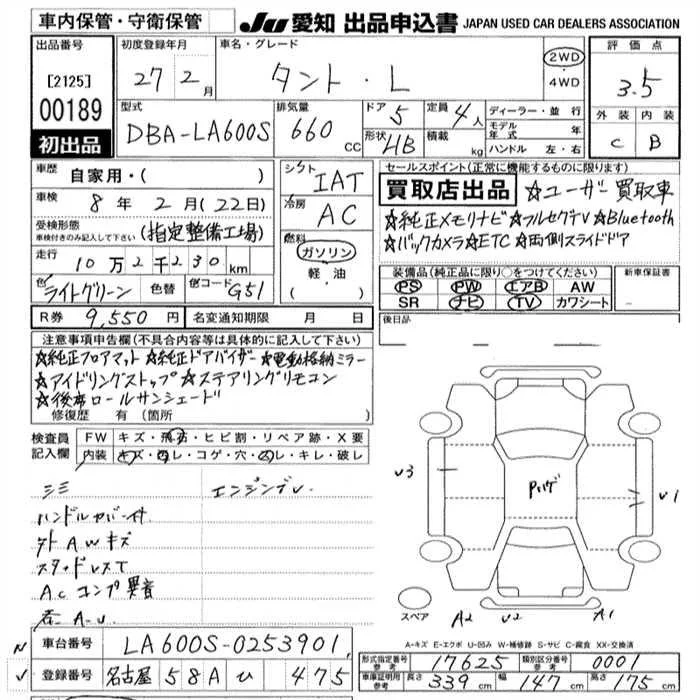 車内保管・守衛保管
JU 愛知 出品申込書 JAPAN USED CAR DEALERS ASSOCIATION
出品番号
[2125]
00189
初出品
初度登録年月
27 2月
車名・グレード
タント・L
2WD
・
4WD
評価点
3.5
外装 内装
C B
型式
DBA-LA600S
排気量
660 CC
ドア 5
形状 HB
定員 4人
積載 kg
ディーラー・並行
モデル年式 年
ハンドル 左・右
車歴
自家用・( )
車検 8年 2月(22日)
受検形態
車検付きのみ記入して下さい
(指定整備工場)
走行 10万2千230km
色 ライトグリーン 色替 色コード G51
R券 9,550円 名変通知期限 月 日
シフト IAT
冷房 AC
燃料
ガソリン
軽・油
( )
セールスポイント(正常に機能するものに限ります)
買取店出品 ☆ユーザー買取車
☆純正メモリナビ☆フルセグTV☆Bluetooth
☆バックカメラ☆ETC☆両側スライドドア
装備品(純正品に限り○をつけてください)
PS PW エアB AW
SR ナビ TV カワシート
新車保証書
後日品
注意事項申告欄(不具合内容等は具体的に記入して下さい)
☆純正フロアマット ☆純正ドアバイザー ☆電動格納ミラー
☆アイドリングストップ ☆ステアリングリモコン
☆後席ロールサンシェード
修復歴 有 (箇所 )
検査員
記入欄
FW キズ・飛石・ヒビ割・リペア跡・X要
内装 キズ・汚レ・コゲ・穴・スレ・キレ・破レ
エンジンデU.
ハンドルカバー付
外AWキズ
スタッドレスT
ACコンプ異音
A-U.
U3
U1
スペア
A2 U2 A1
A-キズ E-エクボ U-凹み W-補修跡 S-サビ C-腐食 XX-交換済
車台番号 LA600S-0253901
登録番号 名古屋 58A ひ 475
形式指定番号
参考
17625
類別区分番号
参考
0001
車庫証明用
参考
長さ 339cm 幅 147cm 高さ 175cm